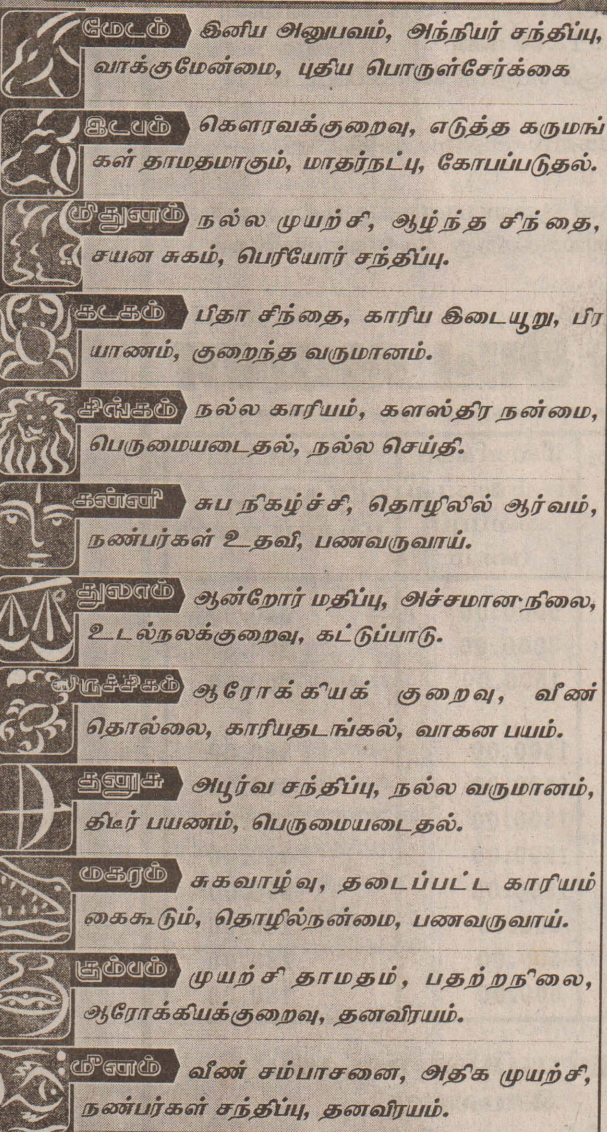 மேடம் இனிய அனுபவம், அந்நியர் சந்திப்பு,
வாக்குமேன்மை, புதிய பொருள்சேர்க்கை
இடபம் கௌரவக்குறைவு, எடுத்த கருமங்
கள் தாமதமாகும், மாதர்நட்பு, கோபப்படுதல்.
மிதுனம் நல்ல முயற்சி, ஆழ்ந்த சிந்தை,
சயன சுகம், பெரியோர் சந்திப்பு.
கடகம் பிதா சிந்தை, காரிய இடையூறு, பிர
யாணம், குறைந்த வருமானம்.
சிங்கம் நல்ல காரியம், களஸ்திர நன்மை,
பெருமையடைதல், நல்ல செய்தி.
கன்னி சுப நிகழ்ச்சி, தொழிலில் ஆர்வம்,
நண்பர்கள் உதவி, பணவருவாய்.
துலாம் ஆன்றோர் மதிப்பு, அச்சமான நிலை,
உடல்நலக்குறைவு, கட்டுப்பாடு.
விருச்சிகம் ஆரோக்கியக் குறைவு, வீண்
தொல்லை, காரியதடங்கல், வாகன பயம்.
தனுசு அபூர்வ சந்திப்பு, நல்ல வருமானம்,
திடீர் பயணம், பெருமையடைதல்.
மகரம் சுகவாழ்வு, தடைப்பட்ட காரியம்
கைகூடும், தொழில்நன்மை, பணவருவாய்.
கும்பம் முயற்சி தாமதம், பதற்றநிலை,
ஆரோக்கியக்குறைவு, தனவிரயம்.
மீனம் வீண் சம்பாசனை, அதிக முயற்சி,
நண்பர்கள் சந்திப்பு, தனவிரயம்.